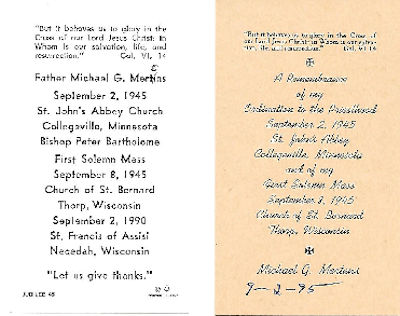 "But it behoves us to glory in the
Cross of our Lord Jesus Christ: in
Whom is our salvation, life, and
resurrection." Gal. VI, 14
Father Michael G. Mertins
e
September 2, 1945
St. John's Abbey Church
Collegeville, Minnesota
Bishop Peter Bartholome
First Solemn Mass
September 8, 1945
Church of St. Bernard
Thorp, Wisconsin
September 2, 1990
St. Francis of Assisi
Necedah, Wisconsin
"Let us give thanks."
JUBILEE 45
"But it behoves us to glory in the Cross of
our Lord Jesus Christ: in Whom is our salva-
tion, life, and resurrection." Gal. VI 14
A Remembrance
of my
Ordination to the Priesthood
September 2, 1945
St. John's Abbey
Collegeville, Minnesota
and of my
First Solemn Mass
September 8, 1945
Church of St. Bernard
Thorp, Wisconsin
Michael G. Mertens
9-2-95